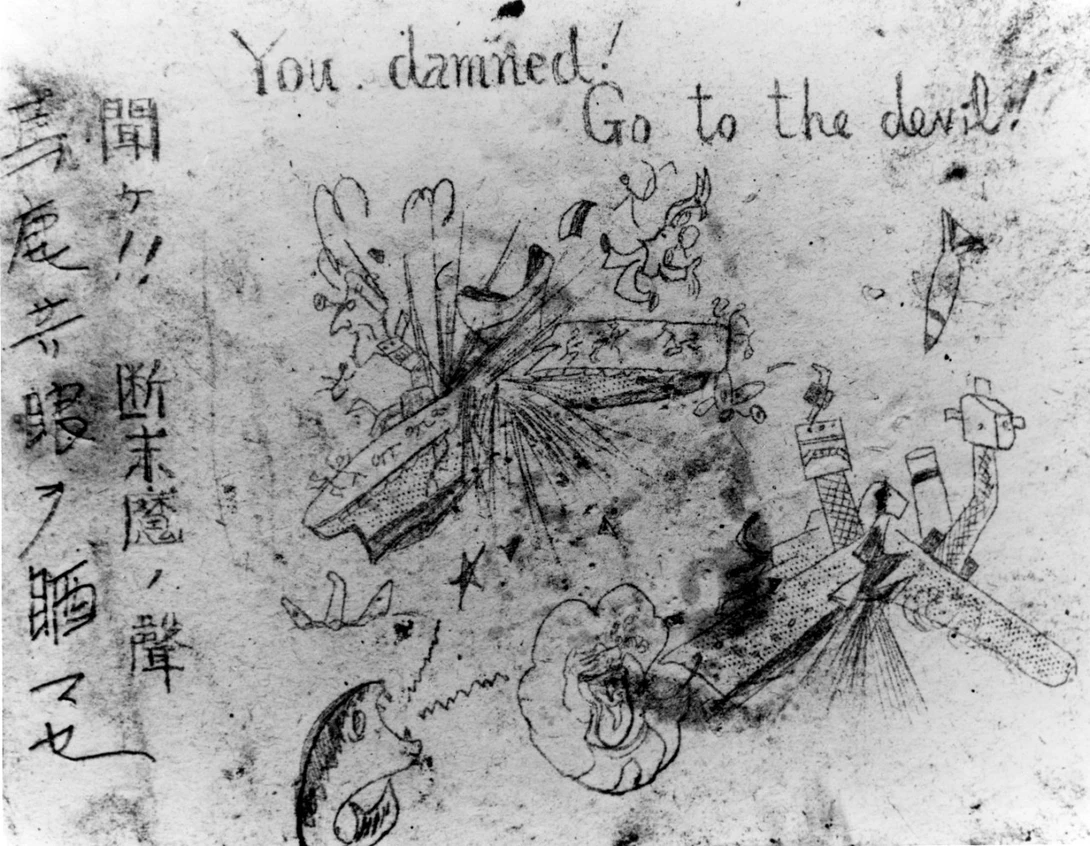 You damned!
Go to the devil!
聞ケ!! 断末魔ノ聲
馬鹿共眼ヲ醒マセ